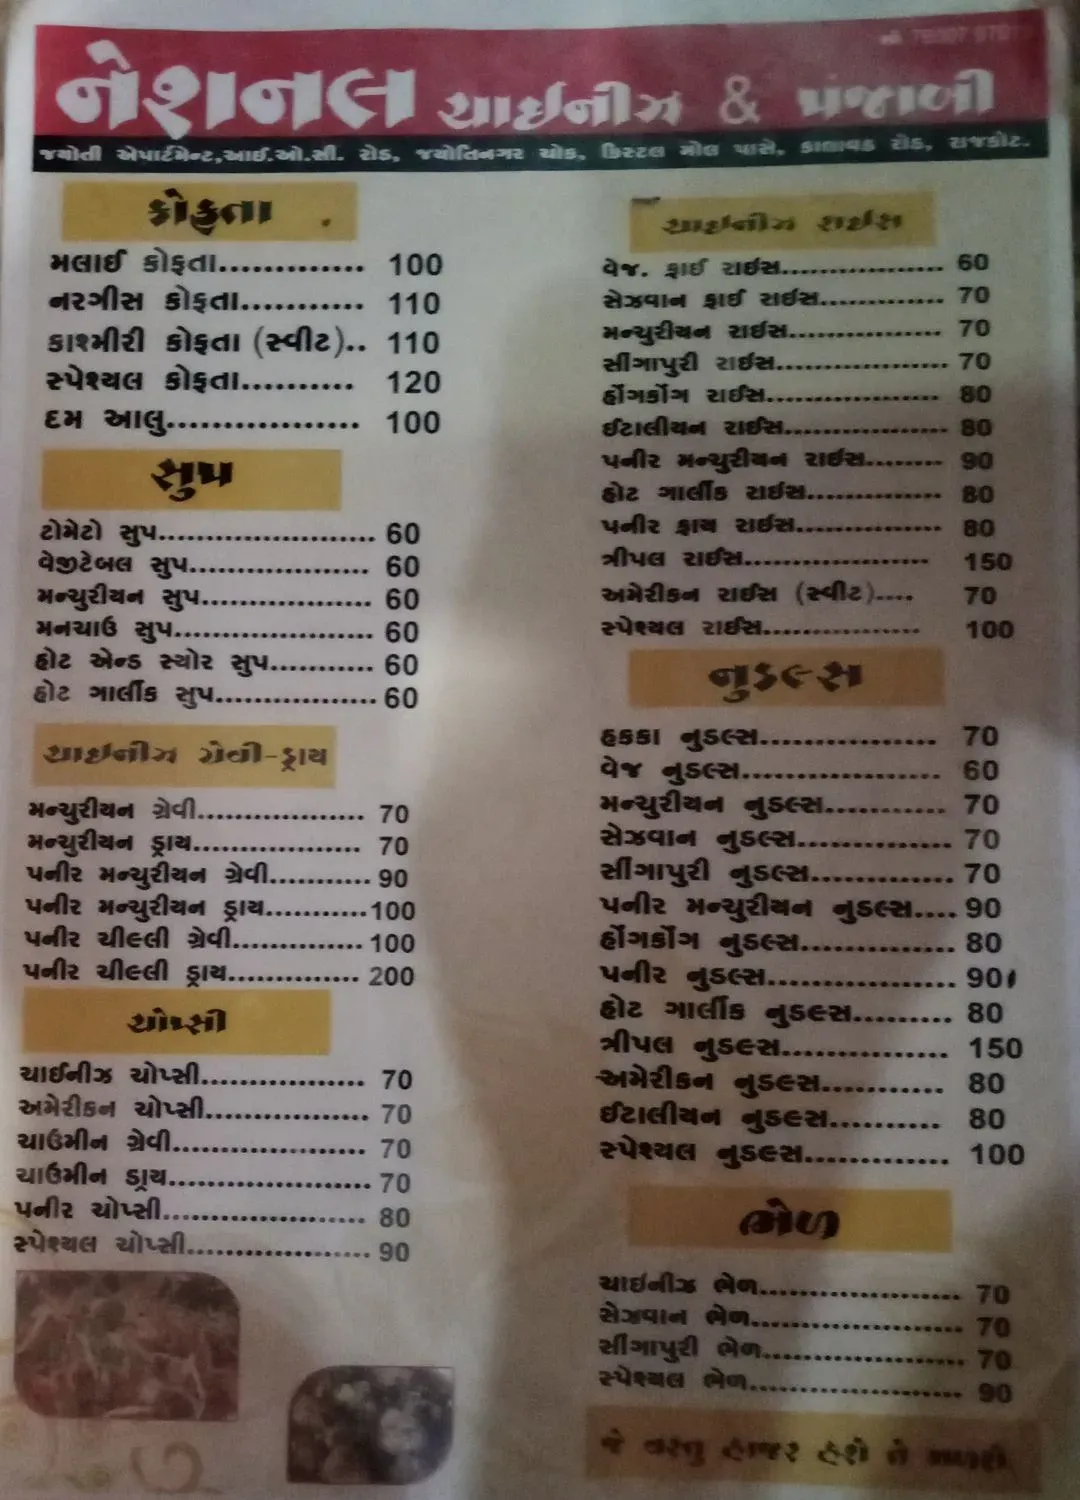 નેશનલ ચાઈનીઝ & પંજાબી
જ્યોતી એપાર્ટમેન્ટ,આઈ.ઓ.સી. રોડ, જ્યોતિનગર ચોક, ક્રિસ્ટલ મોલ પાસે, કાલાવડ રોડ, રાજકોટ.
કોફતા
મલાઈ કોફતા.............. 100
નરગીસ કોફતા............ 110
કાશ્મીરી કોફતા (સ્વીટ).. 110
સ્પેશ્યલ કોફતા.......... 120
દમ આલુ................. 100
સુપ
ટોમેટો સુપ....................... 60
વેજીટેબલ સુપ................... 60
મન્ચુરીયન સુપ.................. 60
મનચાઉ સુપ..................... 60
હોટ એન્ડ સ્યોર સુપ........... 60
હોટ ગાર્લીક સુપ................. 60
ચાઈનીઝ ગ્રેવી-ડ્રાય
મન્ચુરીયન ગ્રેવી.................. 70
મન્ચુરીયન ડ્રાય.................. 70
પનીર મન્ચુરીયન ગ્રેવી........... 90
પનીર મન્ચુરીયન ડ્રાય...........100
પનીર ચીલ્લી ગ્રેવી.............. 100
પનીર ચીલ્લી ડ્રાય.............. 200
ચોપ્સી
ચાઈનીઝ ચોપ્સી.................. 70
અમેરીકન ચોપ્સી.................. 70
ચાઉમીન ગ્રેવી..................... 70
ચાઉમીન ડ્રાય...................... 70
પનીર ચોપ્સી...................... 80
સ્પેશ્યલ ચોપ્સી.................... 90
ચાઈનીઝ રાઈસ
વેજ. ફ્રાઈ રાઈસ.................. 60
સેઝવાન ફ્રાઈ રાઈસ.............. 70
મન્ચુરીયન રાઈસ.................. 70
સીંગાપુરી રાઈસ................... 70
હોંગકોંગ રાઈસ.................... 80
ઈટાલીયન રાઈસ.................. 80
પનીર મન્ચુરીયન રાઈસ......... 90
હોટ ગાર્લીક રાઈસ............... 80
પનીર ફ્રાય રાઈસ................. 80
ત્રીપલ રાઈસ.................... 150
અમેરીકન રાઈસ (સ્વીટ).... 70
સ્પેશ્યલ રાઈસ................. 100
નુડલ્સ
હકકા નુડલ્સ.................. 70
વેજ નુડલ્સ.................... 60
મન્ચુરીયન નુડલ્સ............ 70
સેઝવાન નુડલ્સ............... 70
સીંગાપુરી નુડલ્સ.............. 70
પનીર મન્ચુરીયન નુડલ્સ.... 90
હોંગકોંગ નુડલ્સ............... 80
પનીર નુડલ્સ................... 90
હોટ ગાર્લીક નુડલ્સ......... 80
ત્રીપલ નુડલ્સ............... 150
અમેરીકન નુડલ્સ........... 80
ઈટાલીયન નુડલ્સ.......... 80
સ્પેશ્યલ નુડલ્સ............. 100
ભેળ
ચાઇનીઝ ભેળ..................... 70
સેઝવાન ભેળ...................... 70
સીંગાપુરી ભેળ.................... 70
સ્પેશ્યલ ભેળ...................... 90
જે વસ્તુ હાજર હશે તે મળશે